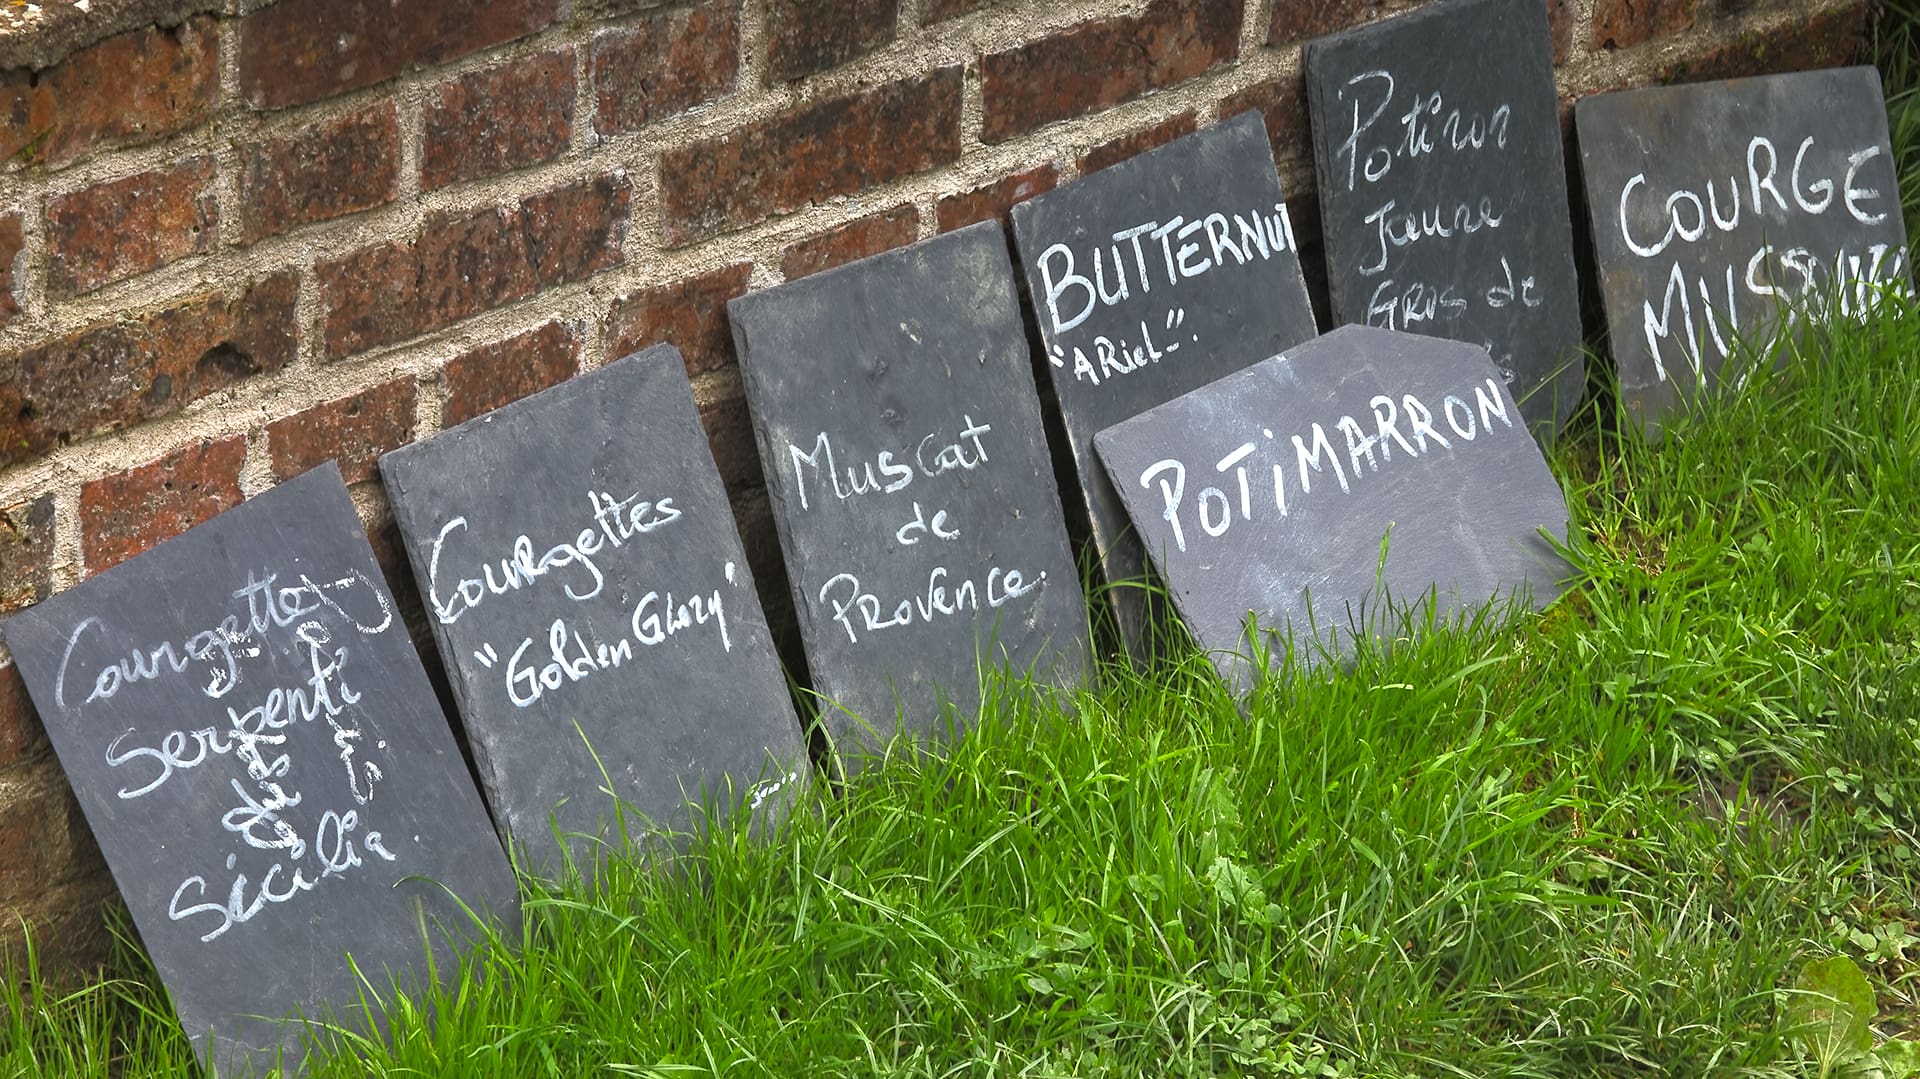 Courgettes
Serpenti
de
Sicilia.
Courgettes
"Golden Glory"
Muscat
de
Provence.
BUTTERNUT
"ARiel".
POTiMARRON
Potiron
Jaune
GRos de
COURGE